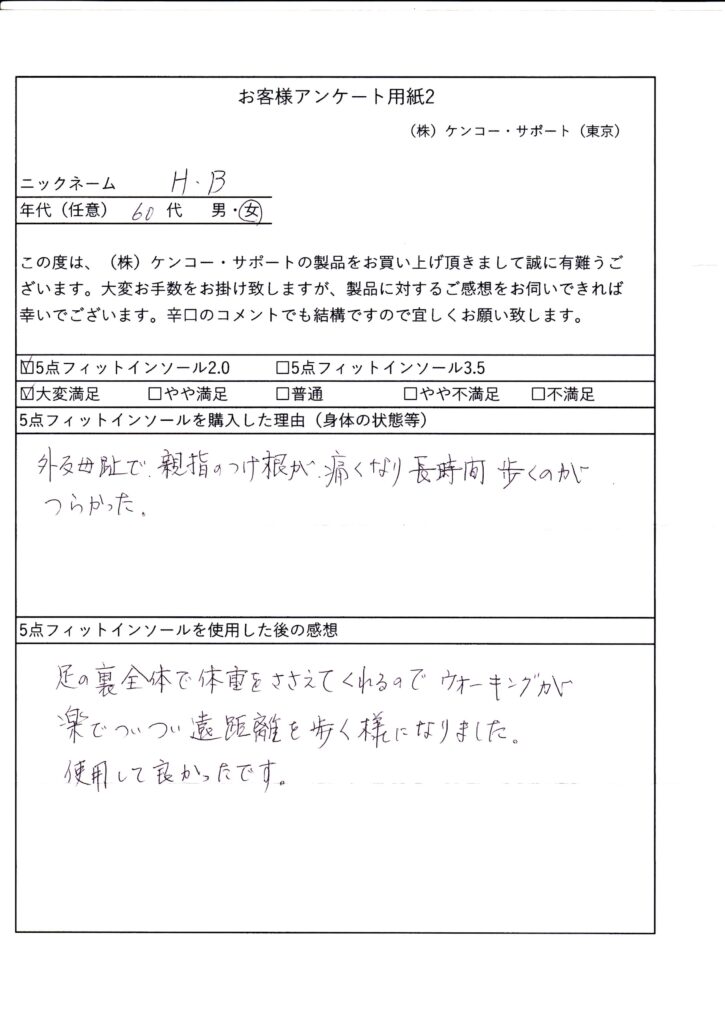 お客様アンケート用紙2
（株）ケンコー・サポート（東京）
ニックネーム H・B
年代（任意） 60 代 男・女
この度は、（株）ケンコー・サポートの製品をお買い上げ頂きまして誠に有難うご
ざいます。大変お手数をお掛け致しますが、製品に対するご感想をお伺いできれば
幸いでございます。辛口のコメントでも結構ですので宜しくお願い致します。
☑5点フィットインソール2.0 □5点フィットインソール3.5
☑大変満足 □やや満足 □普通 □やや不満足 □不満足
5点フィットインソールを購入した理由（身体の状態等）
外反母趾で、親指のつけ根が、痛くなり長時間歩くのが
つらかった。
5点フィットインソールを使用した後の感想
足の裏全体で体重をささえてくれるのでウオーキングが
楽でついつい遠距離を歩く様になりました。
使用して良かったです。